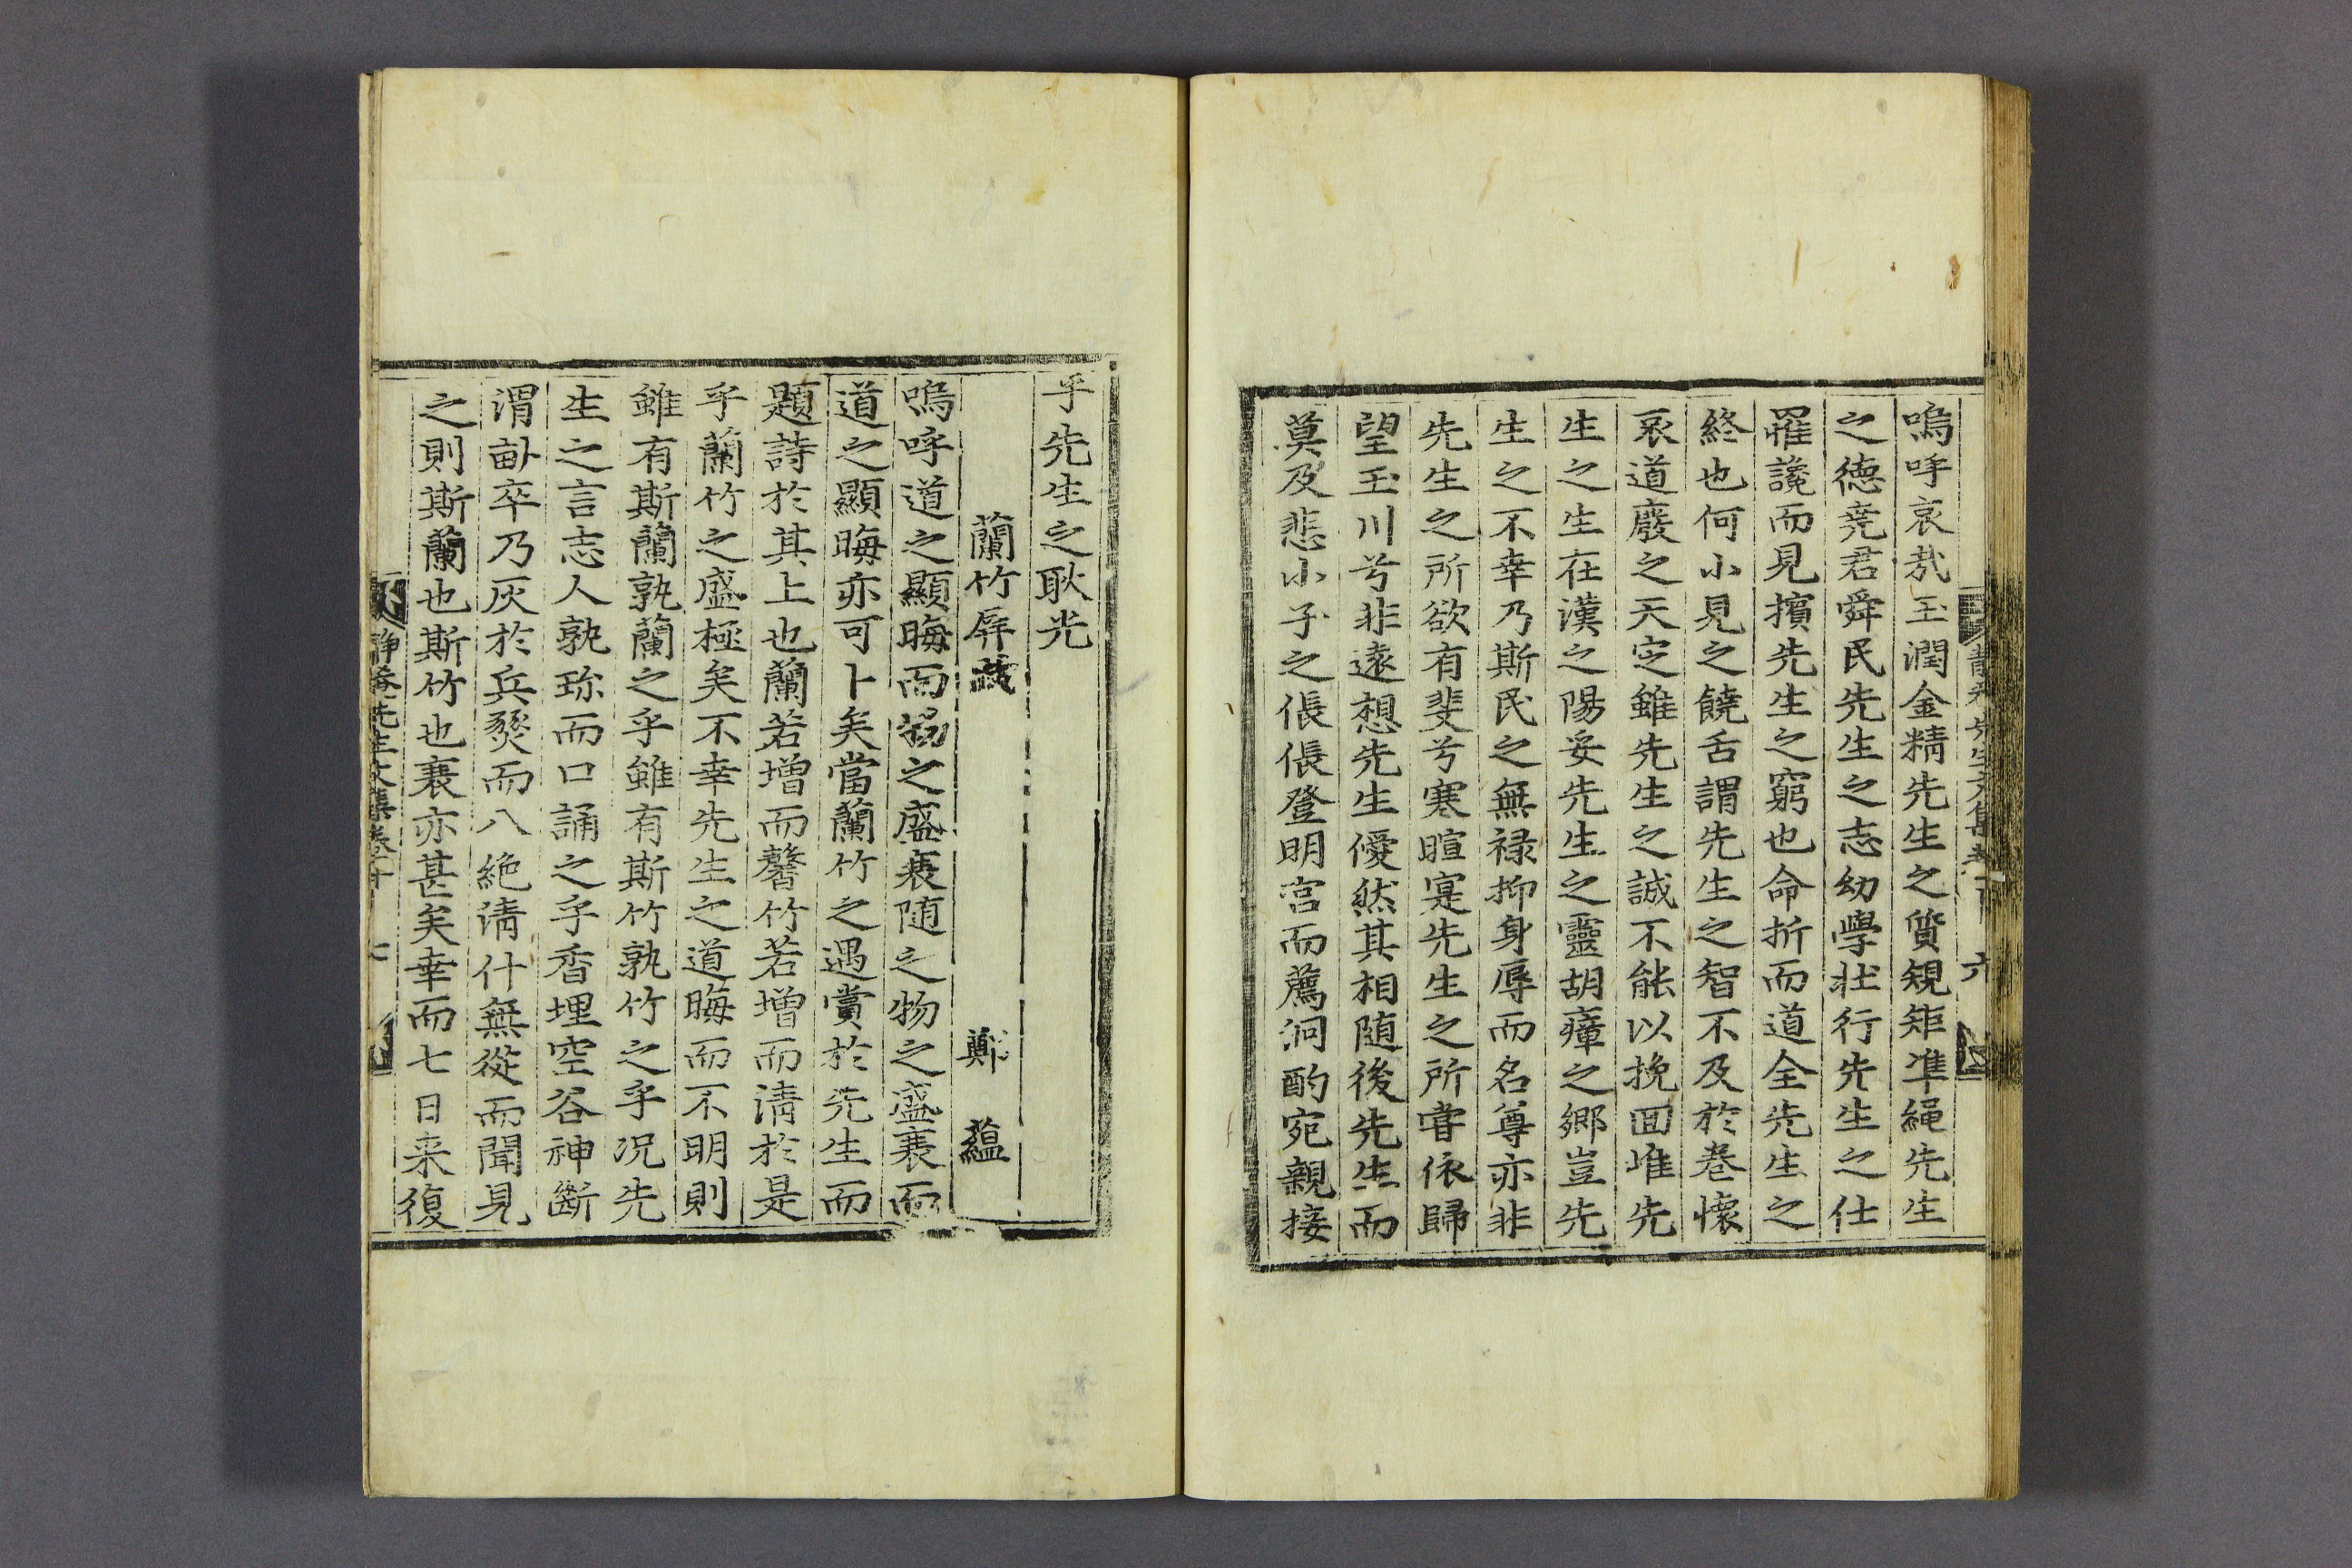 嗚呼哀㦲玉潤金精先生之質䂓矩凖繩先生
之德堯君舜民先生之志幼學壯行先生之仕
罹讒而見擯先生之窮也命折而道全先生之
終也何小見之饒舌謂先生之智不及於卷懷
衷道廢之天定雖先生之誠不能以挽回唯先
生之生在漢之陽妥先生之靈胡瘴之鄉豈先
生之不幸乃斯民之無禄抑身辱而名尊亦非
先生之所欲有斐兮寒暄寔先生之所甞依歸
望玉川兮非遠想先生僾然其相随後先生而
莫及悲小子之倀倀登明宫而薦泂酌宛親接
靜菴先生文集卷 六
乎先生之耿光
蘭竹屛 鄭 蘊
嗚呼道之顯晦而物之盛衰随之物之盛衰而
道之顯晦亦可卜矣當蘭竹之遇賞於先生而
題詩於其上也蘭若增而馨竹若增而清於是
乎蘭竹之盛極矣不幸先生之道晦而不明則
雖有斯蘭孰蘭之乎雖有斯竹孰竹之乎况先
生之言志人孰珎而口誦之乎香埋空谷神斷
渭畝卒乃灰於兵燹而八絶清什無從而聞見
之則斯蘭也斯竹也衰亦甚矣幸而七日来復
靜菴先生文集卷 七